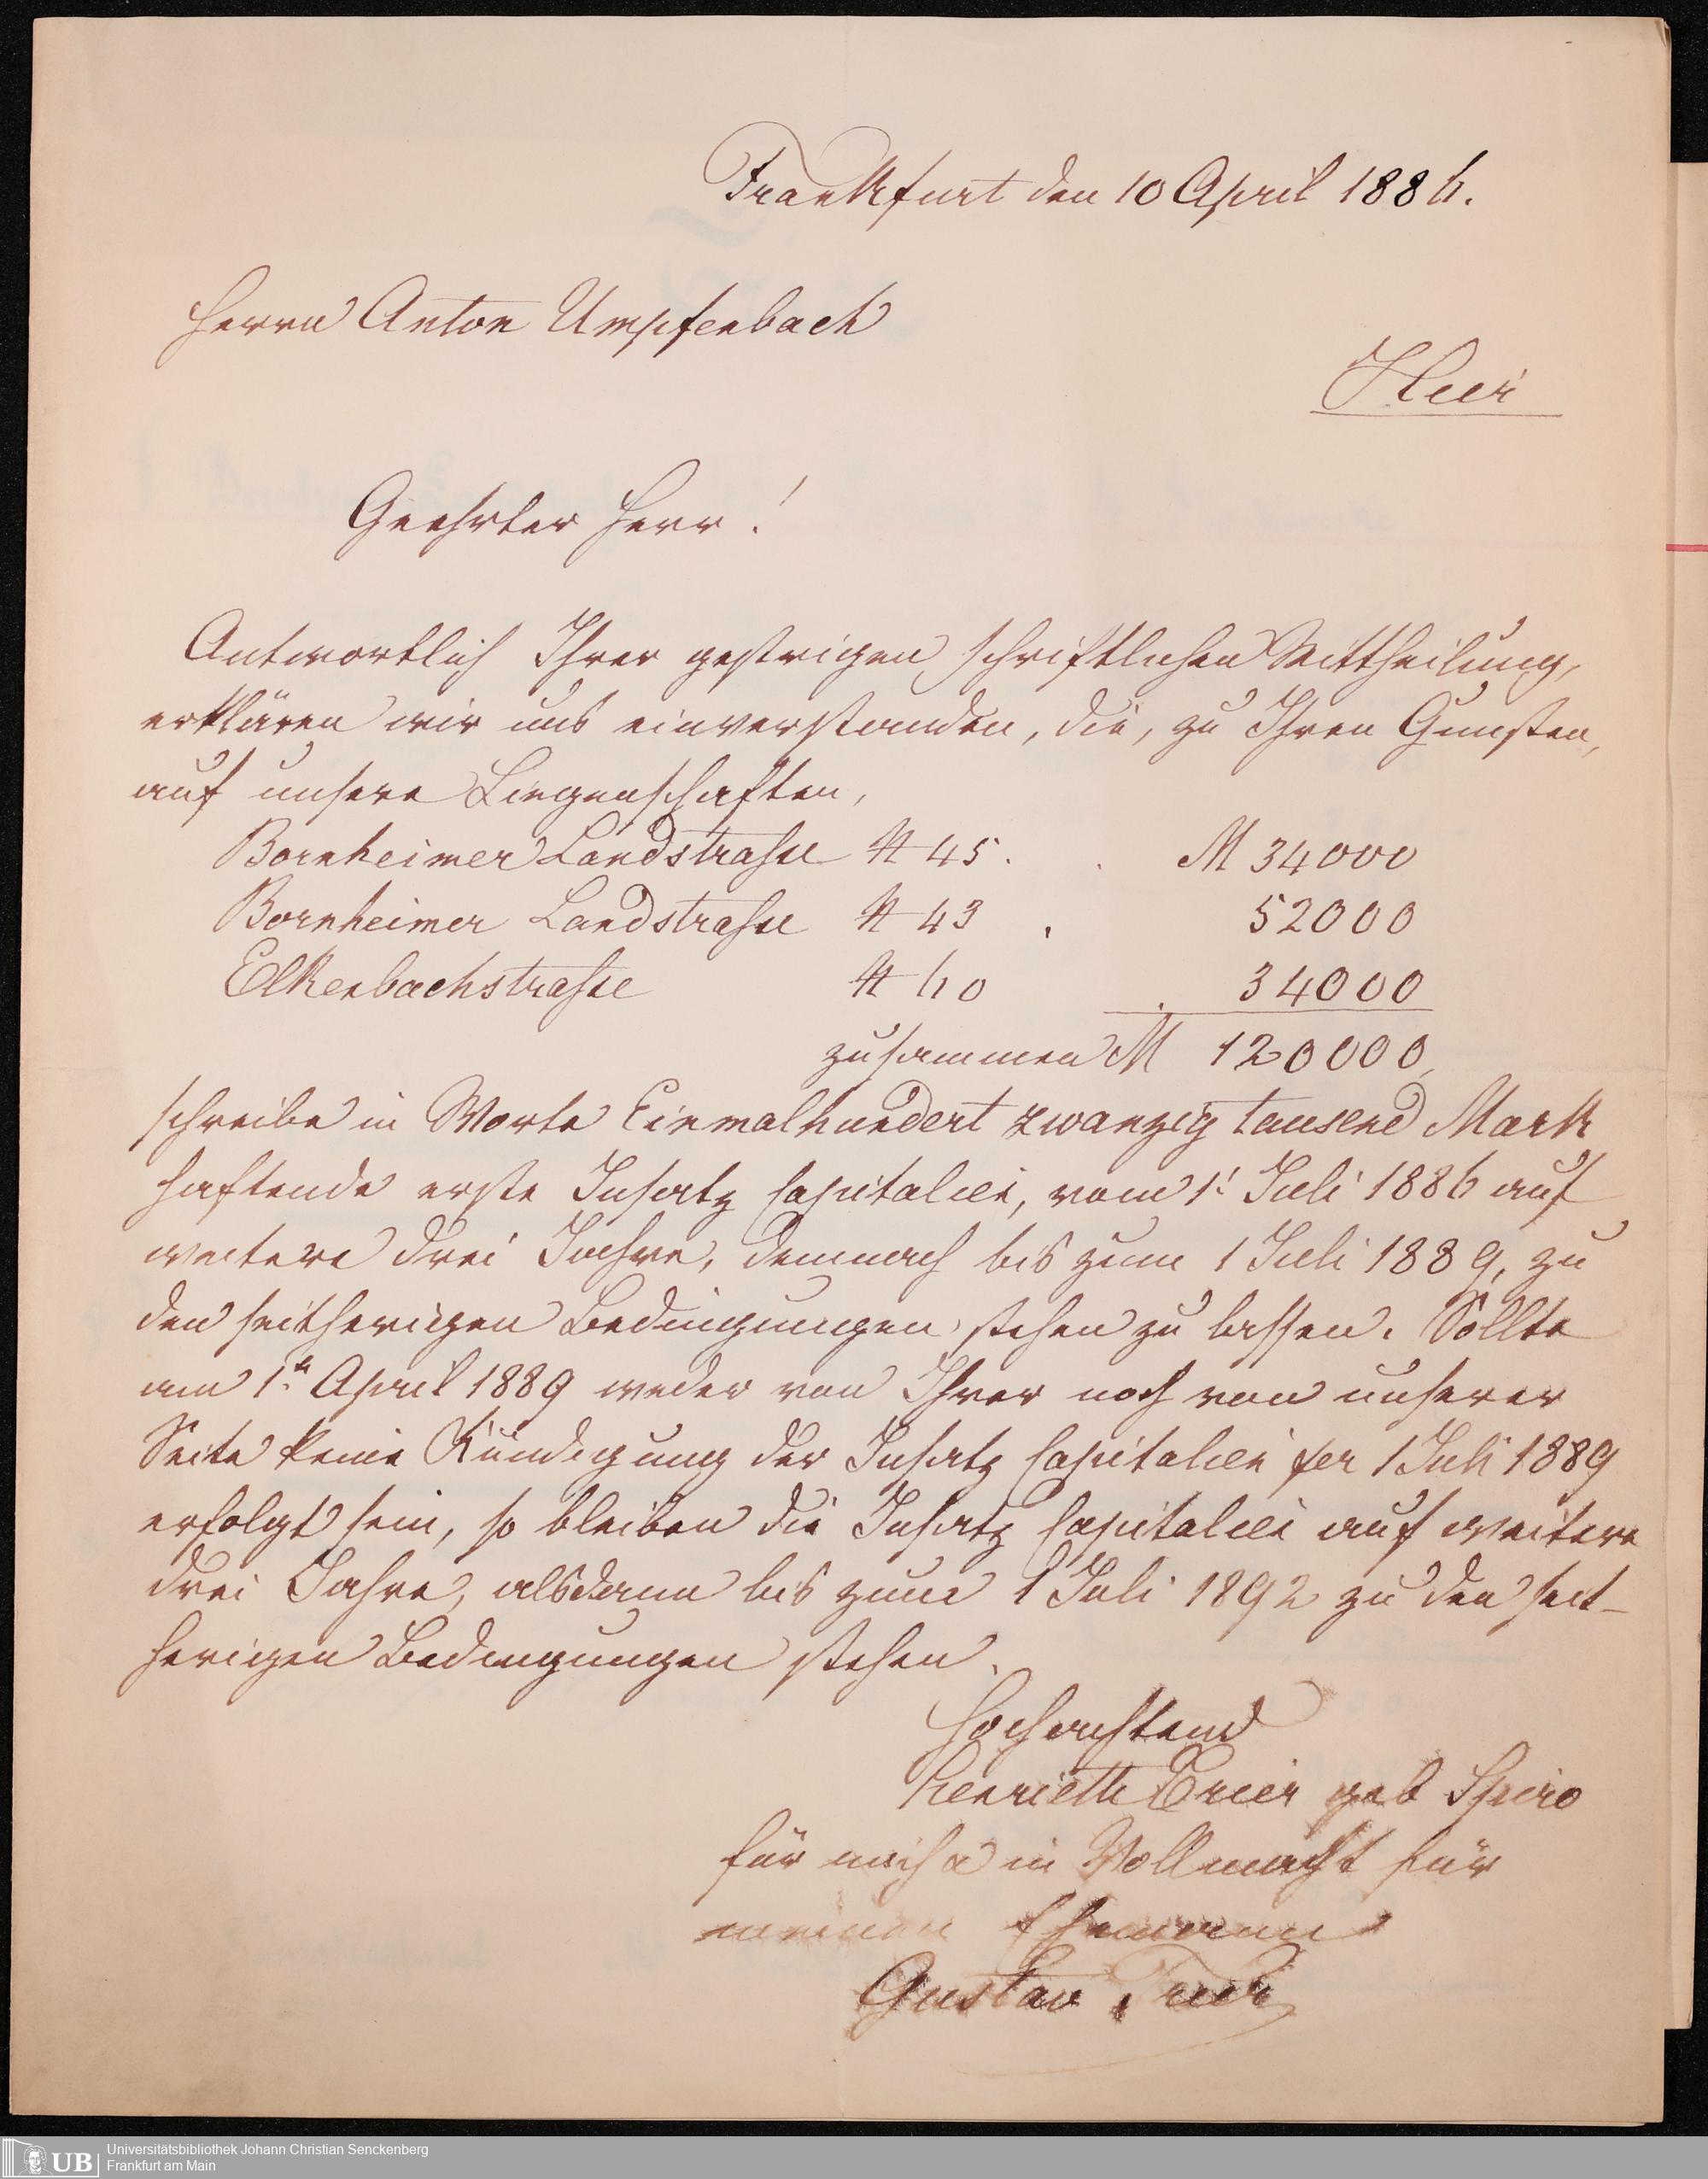 Frankfurt den 10 April 1886.
Herrn Anton Umpfenbach
Hier
Geehrter Herr!
Antwortlich Ihrer gestrigen schriftlichen Mittheilung,
erklären wir uns einverstanden, die, zu Ihren Gunsten,
auf unsere Liegenschaften,
Bornheimer Landstrasse № 45 . . M 34000
Bornheimer Landstrasse № 43 . 52000
Elkenbachstrasse № 60 . 34000
zusammen M 120000,
schreibe in Worte Einmalhundert zwanzig tausend Mark
haftende erste Insatz Capitalien, vom 1t Juli 1886 auf
weitere drei Jahre, demnach bis zum 1 Juli 1889, zu
den seitherigen Bedingungen, stehen zu lassen. Sollte
am 1ten April 1889 weder von Ihrer noch von unserer
Seite keine Kündigung der Insatz Capitalien per 1 Juli 1889
erfolgt sein, so bleiben die Insatz Capitalien auf weitere
drei Jahre, alsdann bis zum 1 Juli 1892 zu den seit-
herigen Bedingungen stehen.
Hochachtend
Henriette Trier geb Spiro
für mich & in Vollmacht für
meinen Ehemann
Gustav Trier
UB
Universitätsbibliothek Johann Christian Senckenberg
Frankfurt am Main